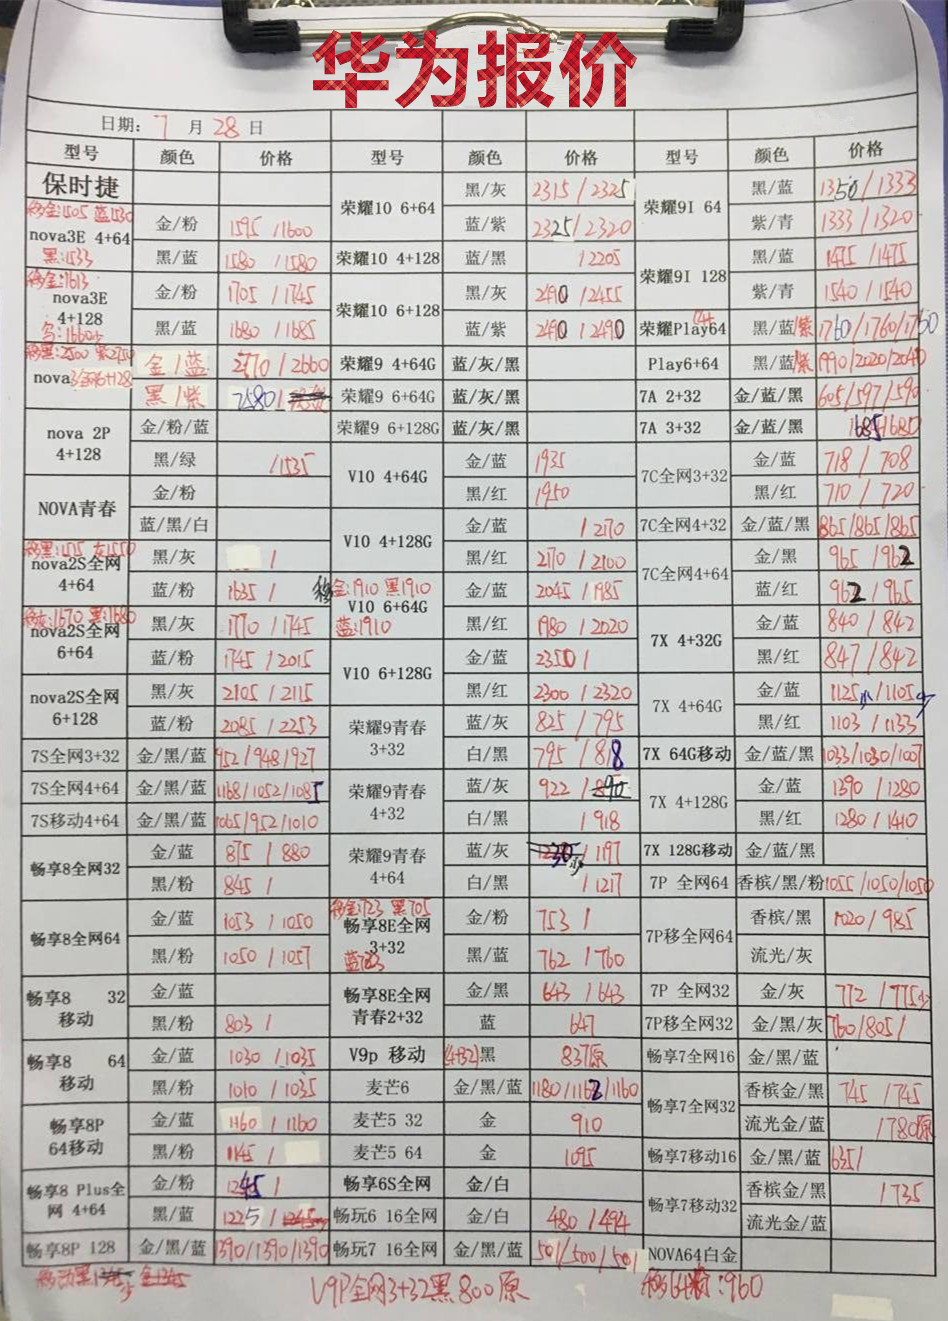 华为报价
日期: 7 月 28 日
型号 颜色 价格 型号 颜色 价格 型号 颜色 价格
保时捷
移金:1505 蓝1530
nova3E 4+64
黑:1533
金/粉 1595 /1600
黑/蓝 1580 /1580
移金:1613
nova3E
4+128
金/粉 1705 /1745
黑/蓝 1680 /1685
移黑:2500 紫2750
nova3全网6+128
金/蓝 2770 /2660
黑/紫 2580/
nova 2P
4+128
金/粉/蓝
黑/绿 /1535
NOVA青春
金/粉
蓝/黑/白
nova2S全网
4+64
黑/灰 /
蓝/粉 1635 /
nova2S全网
6+64
黑/灰 1770 /1745
蓝/粉 1745 /2015
nova2S全网
6+128
黑/灰 2105 /2115
蓝/粉 2085 /2253
7S全网3+32 金/黑/蓝 952/948/927
7S全网4+64 金/黑/蓝 1168/1052/1085
7S移动4+64 金/黑/蓝 1065/952/1010
畅享8全网32
金/蓝 875 / 880
黑/粉 845 /
畅享8全网64
金/蓝 1053 /1050
黑/粉 1050 /1057
畅享8 32
移动
金/蓝
黑/粉 803 /
畅享8 64
移动
金/蓝 1030 /1035
黑/粉 1010 /1035
畅享8P
64移动
金/蓝 1160 /1160
黑/粉 1145 /
畅享8 Plus全
网 4+64
金/粉 1245 /
黑/蓝 1225 /
畅享8P 128 金/黑/蓝 1390/1390/1390
荣耀10 6+64
黑/灰 2315 /2325
蓝/紫 2325/2320
荣耀10 4+128 蓝/黑 /2205
荣耀10 6+128
黑/灰 2490 /2455
蓝/紫 2490 /2490
荣耀9 4+64G 蓝/灰/黑
荣耀9 6+64G 蓝/灰/黑
荣耀9 6+128G 蓝/灰/黑
V10 4+64G
金/蓝 1935
黑/红 1950
V10 4+128G
金/蓝 /2170
黑/红 2170 /2100
移金:1910 黑1910
V10 6+64G
蓝:1910
金/蓝 2045 /1985
黑/红 1980 /2020
V10 6+128G
金/蓝 2350 /
黑/红 2300 /2320
荣耀9青春
3+32
蓝/灰 825 /795
白/黑 795 /818
荣耀9青春
4+32
蓝/灰 922 /
白/黑 /918
荣耀9青春
4+64
蓝/灰 /1197
白/黑 /1217
移金:723 黑705
畅享8E全网
3+32
金/粉 753 /
黑/蓝 762 /760
畅享8E全网
青春2+32
金/黑 643 /643
蓝 647
V9p 移动 (4+32)黑 837原
麦芒6 金/黑/蓝 1180/1162/1160
麦芒5 32 金 910
麦芒5 64 金 1095
畅享6S全网 金/白
畅玩6 16全网 金/白 480 /494
畅玩7 16全网 金/黑/蓝 501/500/501
荣耀9I 64
黑/蓝 1350/1333
紫/青 1333 /1320
荣耀9I 128
黑/蓝 1475 /1475
紫/青 1540 /1540
荣耀Play64 黑/蓝/紫 1760/1760/1750
Play6+64 黑/蓝/紫 1990/2020/2040
7A 2+32 金/蓝/黑 605/597/590
7A 3+32 金/蓝/黑 1685/680
7C全网3+32
金/蓝 718 / 708
黑/红 710 / 720
7C全网4+32 金/蓝/黑 865/865/865
7C全网4+64
金/黑 965 /962
蓝/红 962 /965
7X 4+32G
金/蓝 840 /842
黑/红 847 /842
7X 4+64G
金/蓝 1125少/1105少
黑/红 1103 /1133
7X 64G移动 金/蓝/黑 1033/1030/1007
7X 4+128G
金/蓝 1390 /1280
黑/红 1280 /1410
7X 128G移动 金/蓝/黑
7P 全网64 香槟/黑/粉 1055 /1050/1050
7P移全网64
香槟/黑 1020 /985
流光/灰
7P 全网32 金/灰 772 /775少
7P移全网32 金/黑/灰 760/805/
畅享7全网16 金/黑/蓝
畅享7全网32
香槟金/黑 745 /745
流光金/蓝 /780原
畅享7移动16 金/黑/蓝 635/
畅享7移动32
香槟金/黑 /735
流光金/蓝
NOVA64白金
V9P全网3+32黑800原